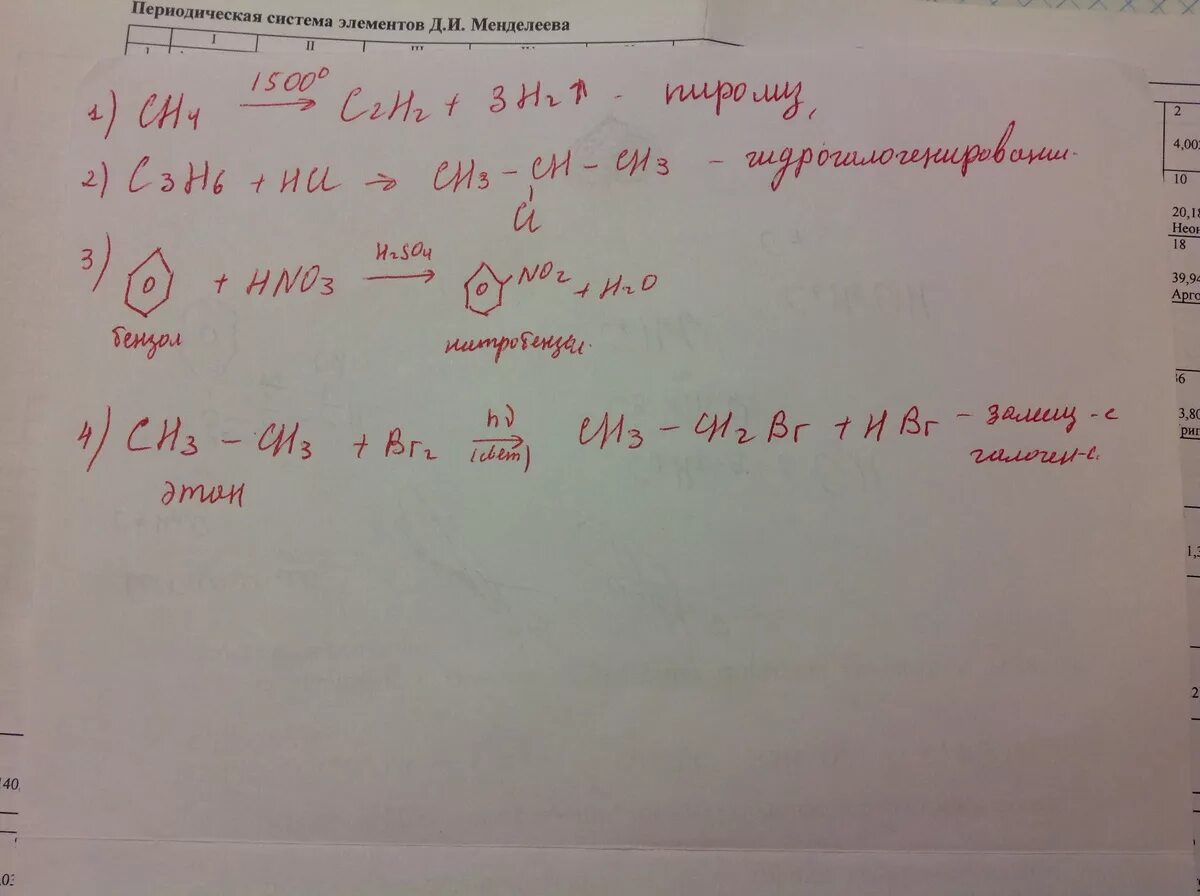 Периодическая система элементов Д.И. Менделеева
I II III
1) CH4 1500° → C2H2 + 3H2↑ - пиролиз,
2) C3H6 + HCl → CH3 – CH – CH3 – гидрогалогенирование
Cl
3) + HNO3 H2SO4 → NO2 + H2O
бензол нитробензол
4) CH3 – CH3 + Br2 hν (свет) → CH3 – CH2Br + HBr – замещ-е
этан галоген-е
2
4,00
10
20,18
Неон
18
39,94
Арго
36
3,80
рип
1,3
2
140,